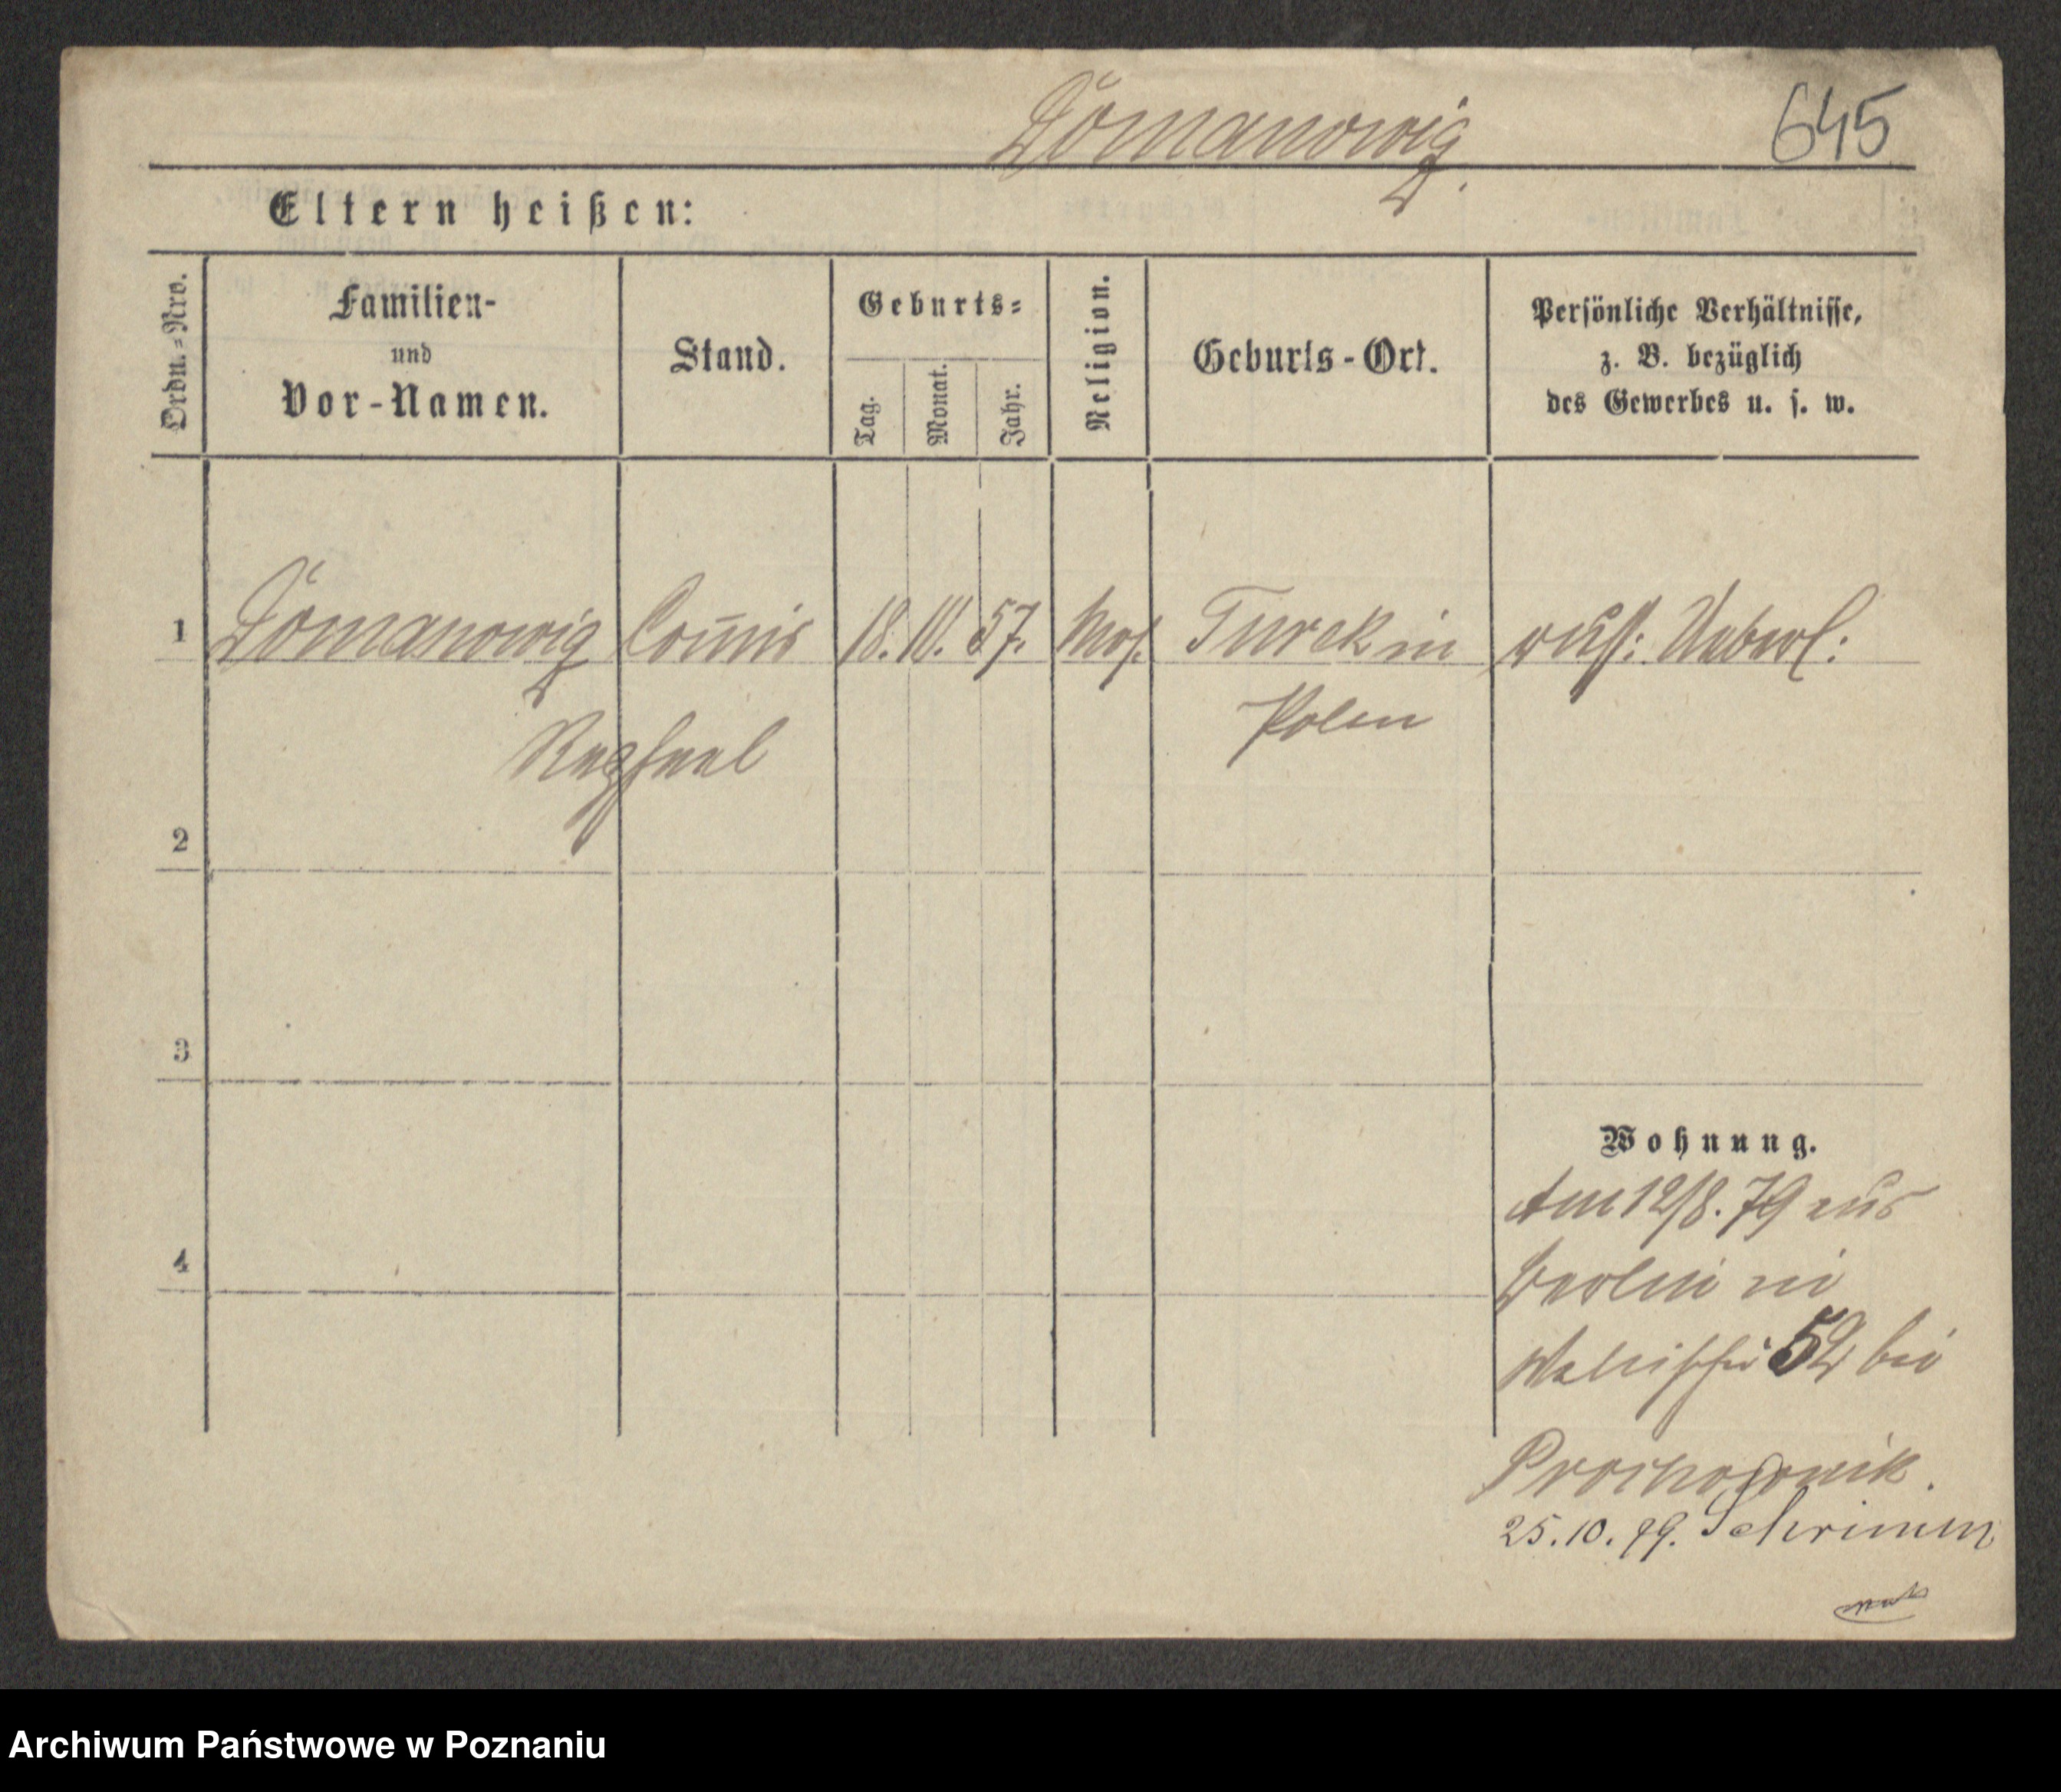 Domanowiz.
645
Eltern heißen:
Ordn.-Nro.
Familien-
und
Vor-Namen.
Stand.
Geburts-
Tag.
Monat.
Jahr.
Religion.
Geburts-Ort.
Persönliche Verhältnisse,
z. B. bezüglich
des Gewerbes u. s. w.
1 Domanowiz Com̅is 18. III. 57. Mos. Turek in russ: Ueberl:
Raphael
Polen
2
3
Wohnung.
Am 12/8. 79 aus
4
Berlin in
Wallischei 52 bei
Prochownik.
25.10.79. Schrimm
Archiwum Państwowe w Poznaniu